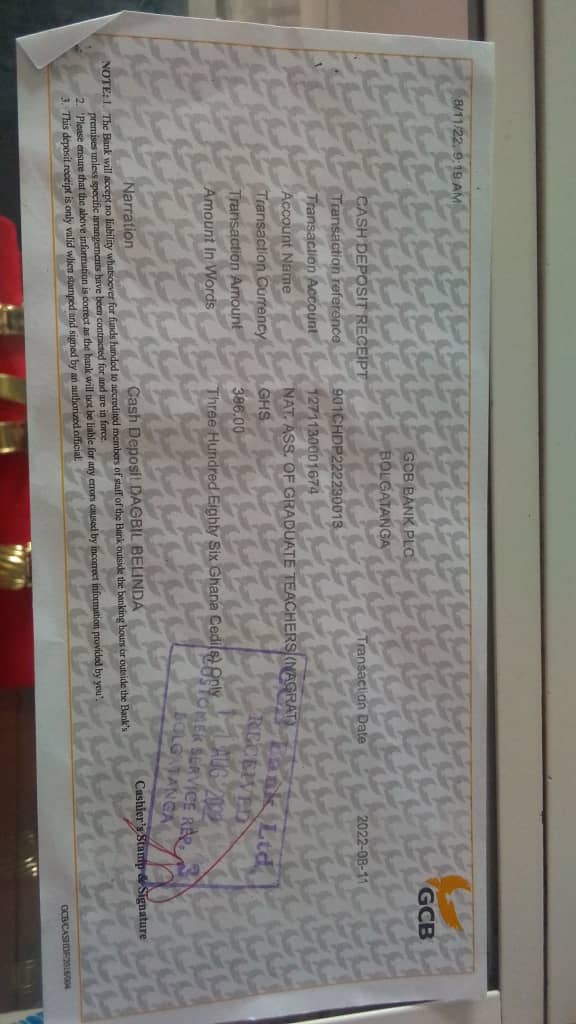 8/11/22, 9:19 AM
GCB
GCB BANK PLC
BOLGATANGA
CASH DEPOSIT RECEIPT Transaction Date 2022-08-11
Transaction reference 901CHDP222230013
Transaction Account 1271130001674
Account Name NAT. ASS. OF GRADUATE TEACHERS (NAGRAT)
Transaction Currency GHS
Transaction Amount 386.00
Amount In Words Three Hundred Eighty Six Ghana Cedi(s) Only
Bank Ltd
RECEIVED
AUG 2022
CUSTOMER SERVICE REP. 3
BOLGATANGA
Narration Cash Deposit DAGBIL BELINDA
Cashier's Stamp & Signature
NOTE: 1. The Bank will accept no liability whatsoever for funds handed to accredited members of staff of the Bank outside the banking hours or outside the Bank's
premises unless specific arrangements have been contracted for and are in force.
2. 'Please ensure that the above information is correct as the bank will not be liable for any errors caused by incorrect information provided by you'.
3. This deposit receipt is only valid when stamped and signed by an authorized official.